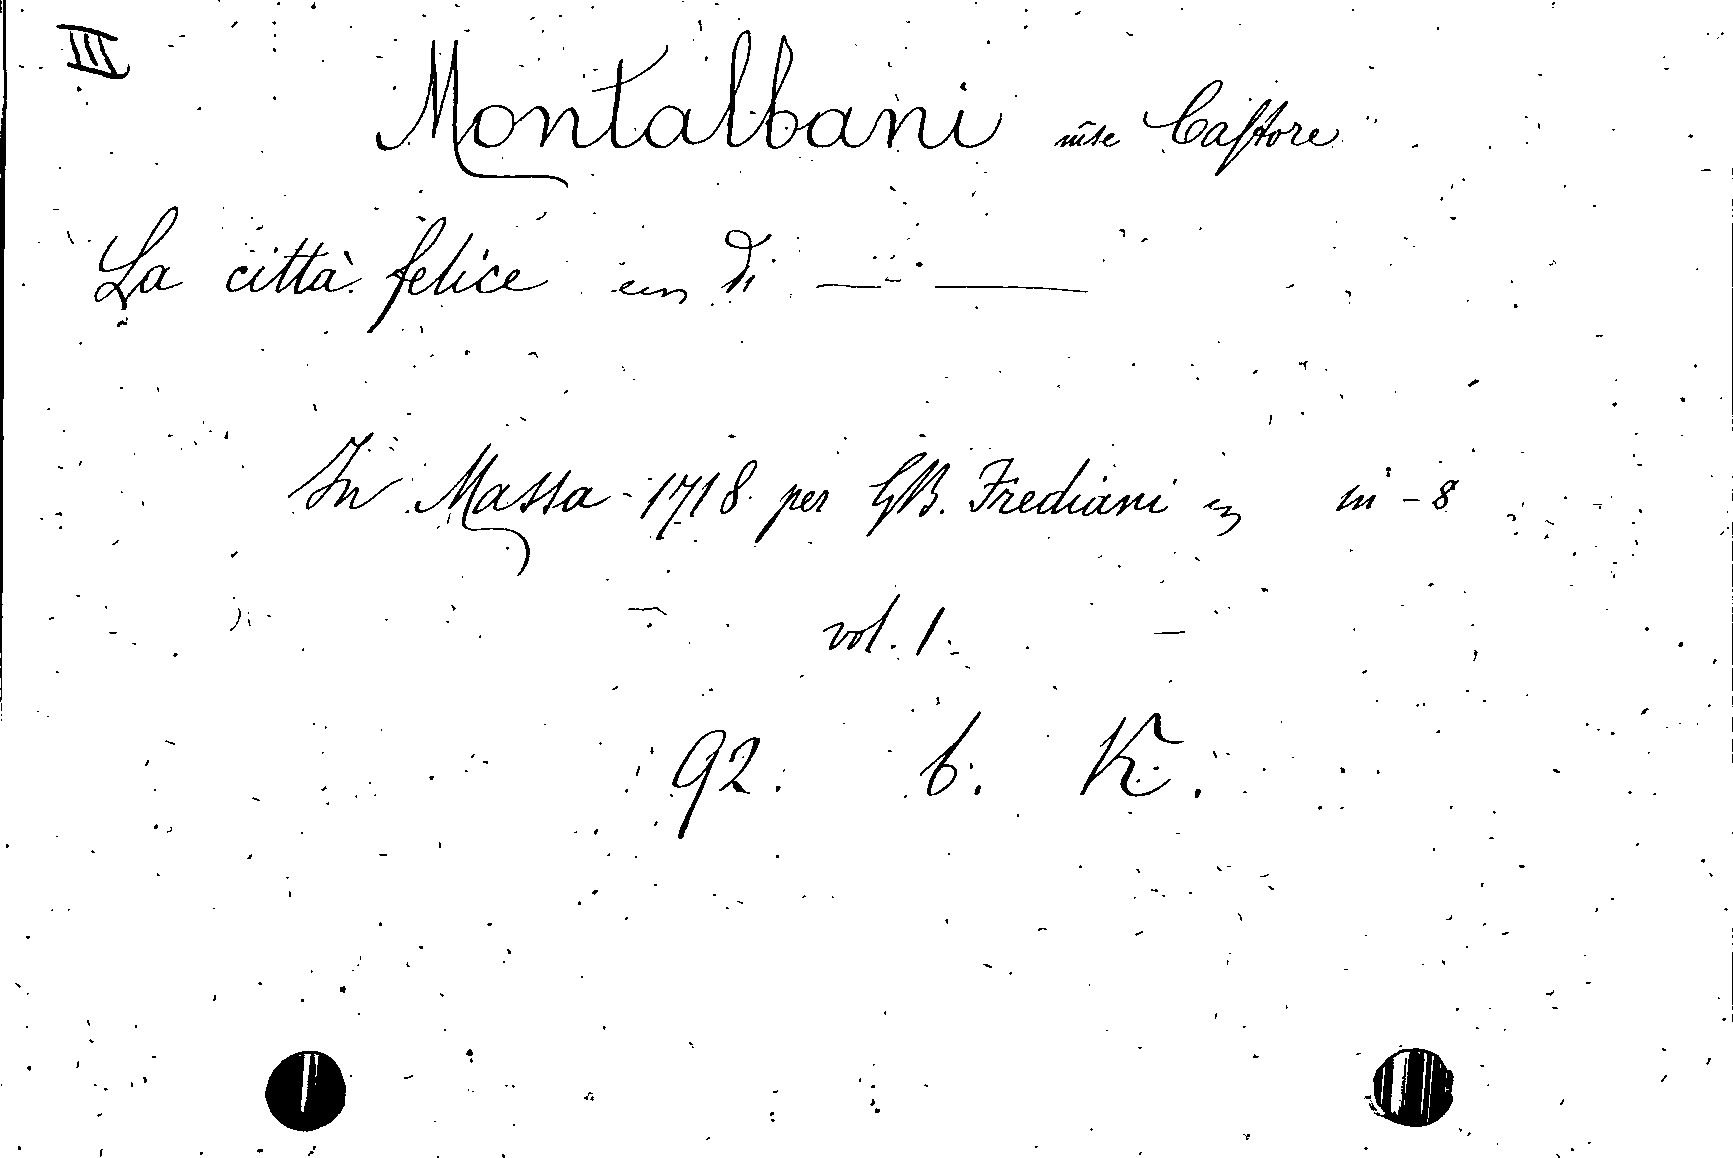 III
Montalbani Castore
La città felice di —— ———
In Massa - 1718 per GB. Frediani in - 8
vol. 1.
92. 6. K.